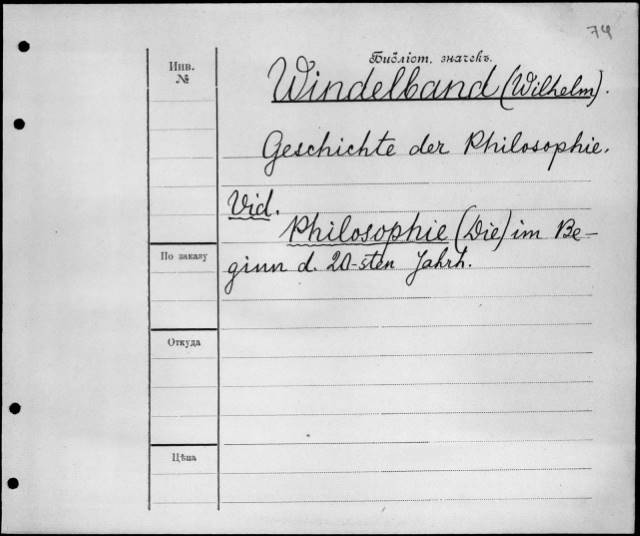 74
Библіот. значекъ.
Инв.
№
Windelband (Wilhelm).
Geschichte der Philosophie.
Vid.
Philosophie (Die) im Be-
ginn d. 20-sten Jahrh.
По заказу
Откуда
Цѣна